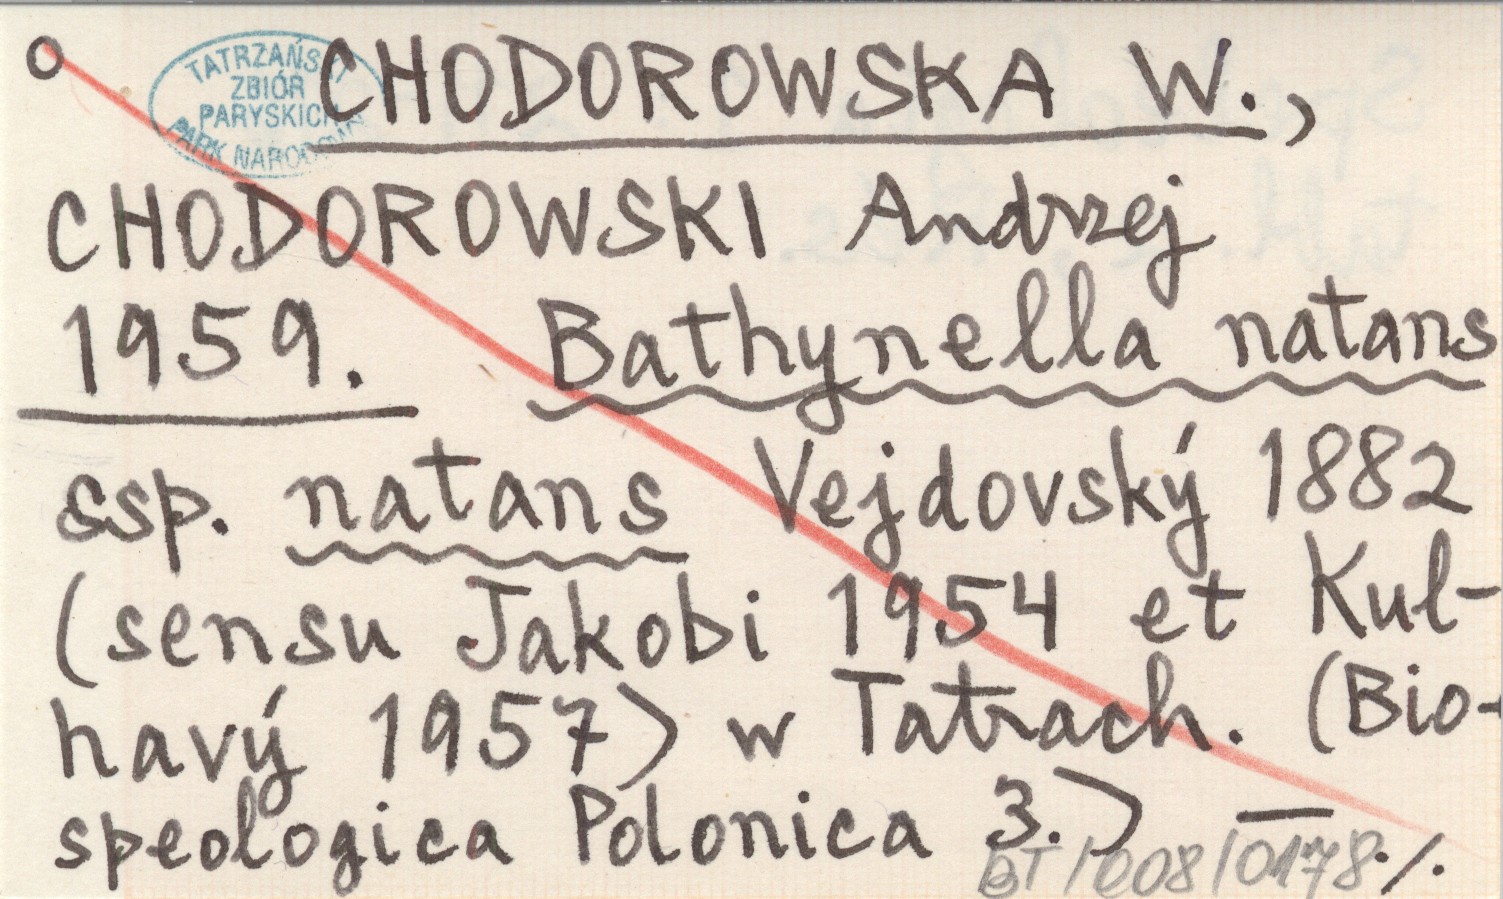 TATRZAŃSKI
ZBIÓR
PARYSKICH
PARK NARODOWY
CHODOROWSKA W.,
CHODOROWSKI Andrzej
1959. Bathynella natans
ssp. natans Vejdovský 1882
(sensu Jakobi 1954 et Kul-
havý 1957) w Tatrach. (Bio-
speologica Polonica 3.) —
BT/008/0178 ./.